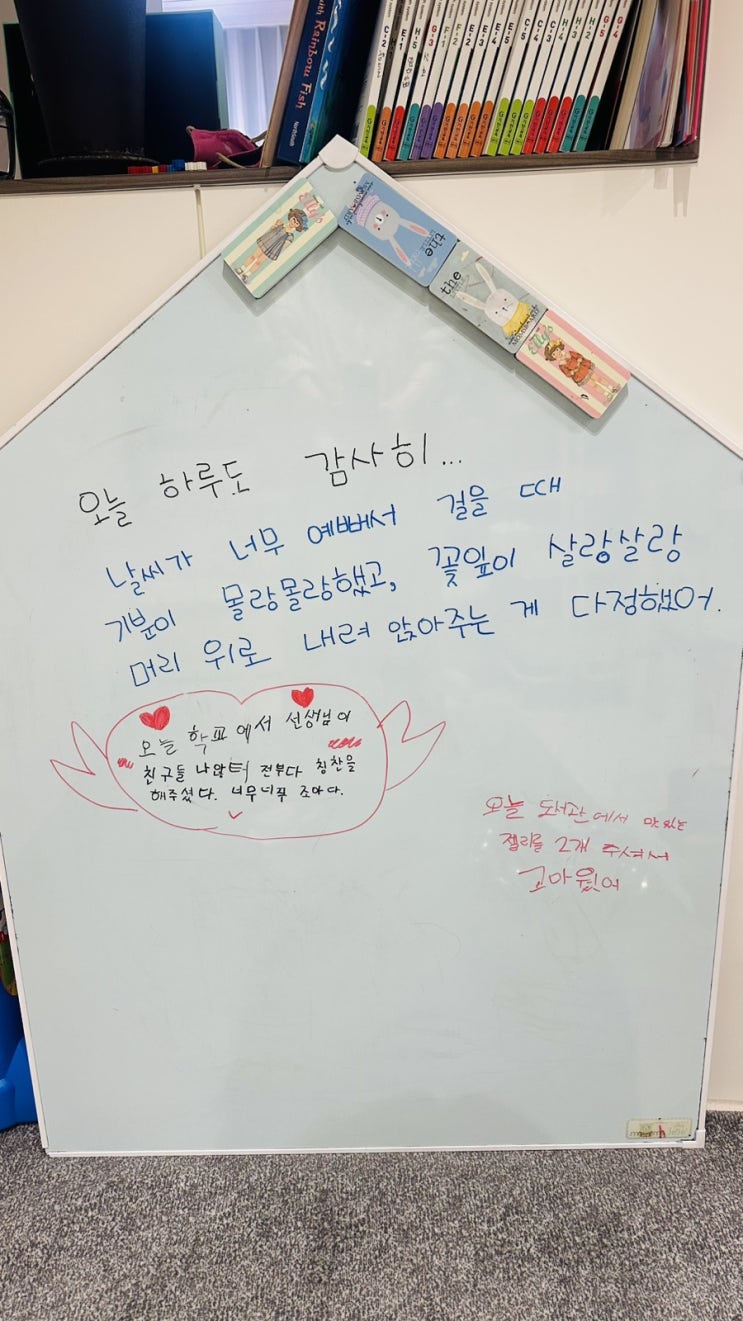 with Rainbow Fish
C-2
E-1
H-5
G-3
F-2
E-2
E-3
E-4
E-5
C-5
C-4
C-3
H-4
H-3
H-2
G-5
G-4
Elly's
the
the
Elly's
오늘 하루도 감사히...
날씨가 너무 예뻐서 걸을 때
기분이 몰랑몰랑했고, 꽃잎이 살랑살랑
머리 위로 내려 앉아주는 게 다정했어.
오늘 학교에서 선생님이
친구들 나앞터 전부다 칭찬을
해주셨다. 너무너무 조아다.
오늘 도서관에서 맛있는
젤리를 2개 주셔서
고마웠어